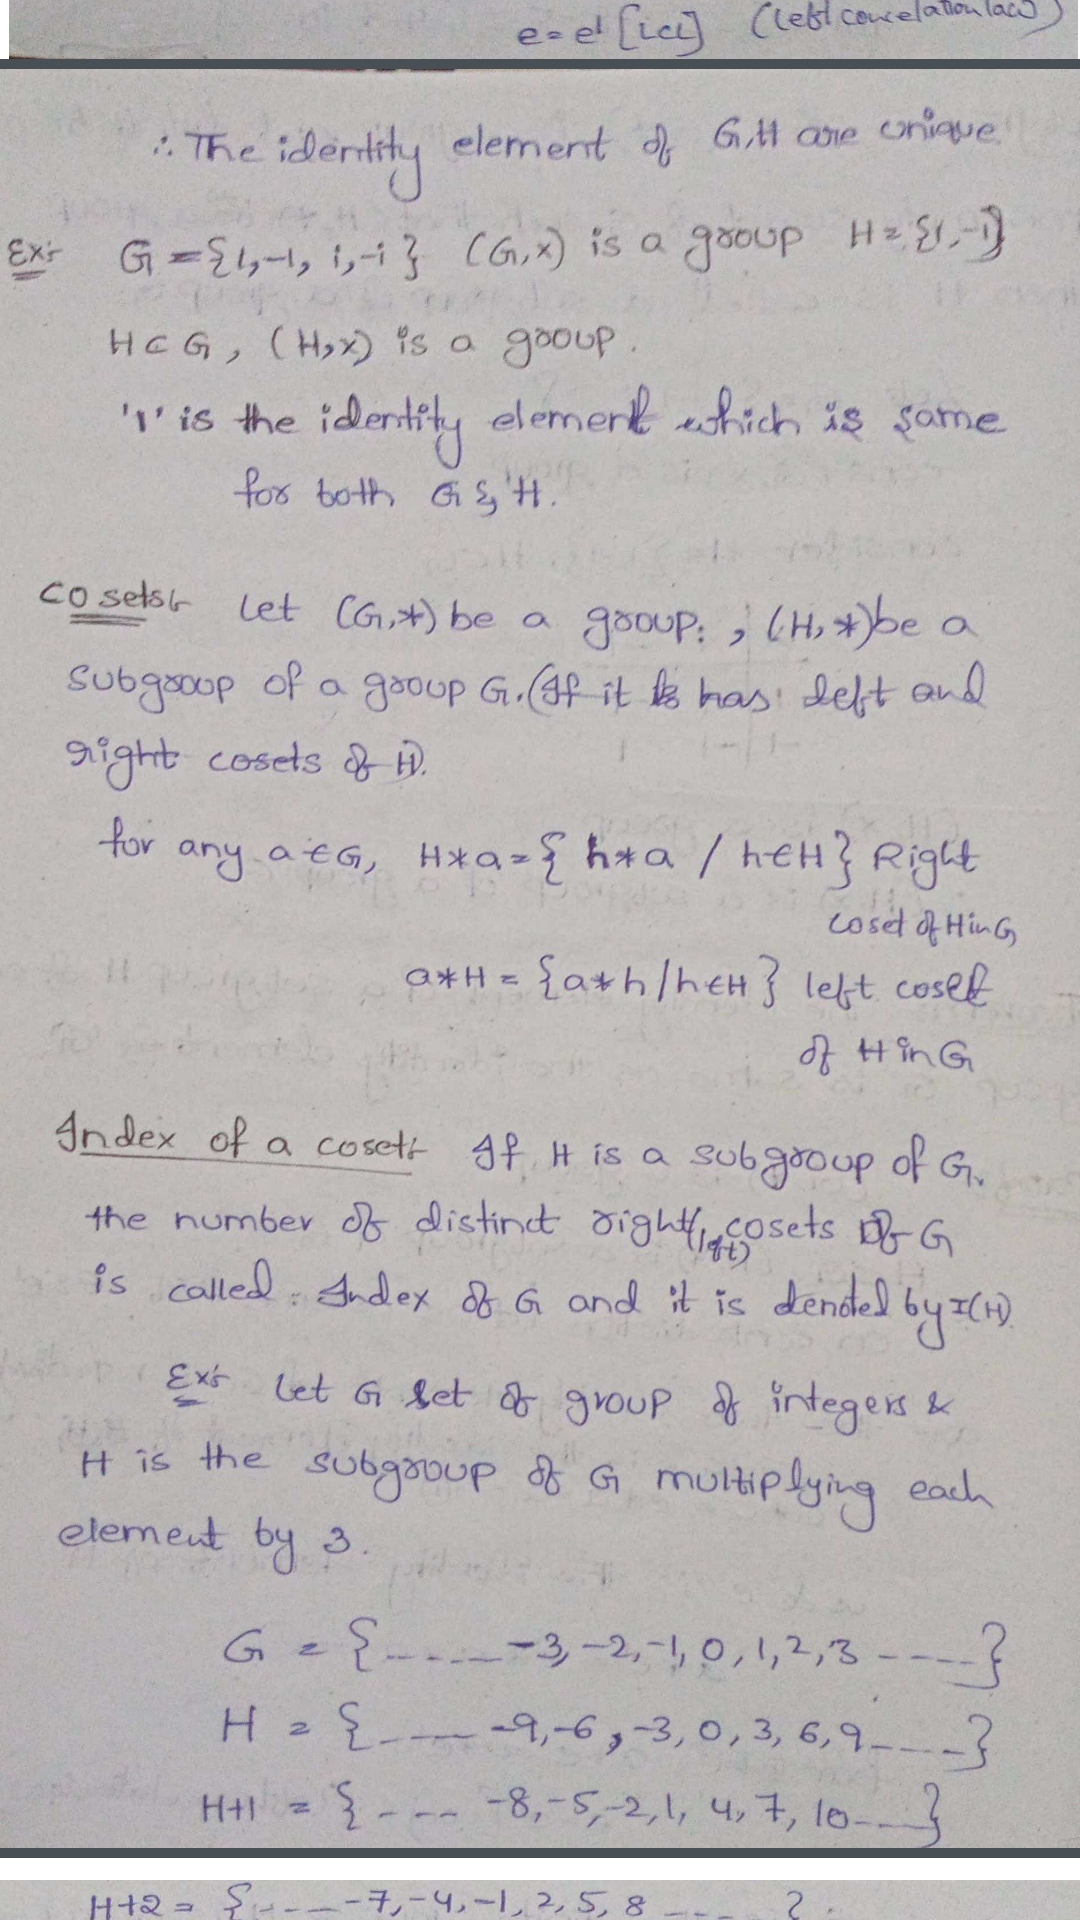 e = e' [LCL] (left concelation law)
∴ The identity element of G,H are unique
Ex:- G = {1,-1, i,-i } (G,x) is a group H = {1,-1}
H ⊂ G , (H,x) is a group.
'1' is the identity element which is same
for both G & H.
Co sets:- Let (G,*) be a group. , (H,*) be a
subgroup of a group G. (If it has left and
right cosets of H).
for any a ∈ G, H*a = { h*a / h∈H } Right
coset of H in G
a*H = {a*h / h∈H } left coset
of H in G
Index of a coset:- If H is a subgroup of G.
the number of distinct right/(left) cosets of G
is called Index of G and it is denoted by I(H)
Ex:- Let G set of group of integers &
H is the subgroup of G multiplying each
element by 3.
G = {------ -3, -2, -1, 0, 1, 2, 3 -----}
H = {----- -9, -6, -3, 0, 3, 6, 9 -----}
H+1 = {---- -8, -5, -2, 1, 4, 7, 10 ----}
H+2 = {----- -7, -4, -1, 2, 5, 8 ----- }.